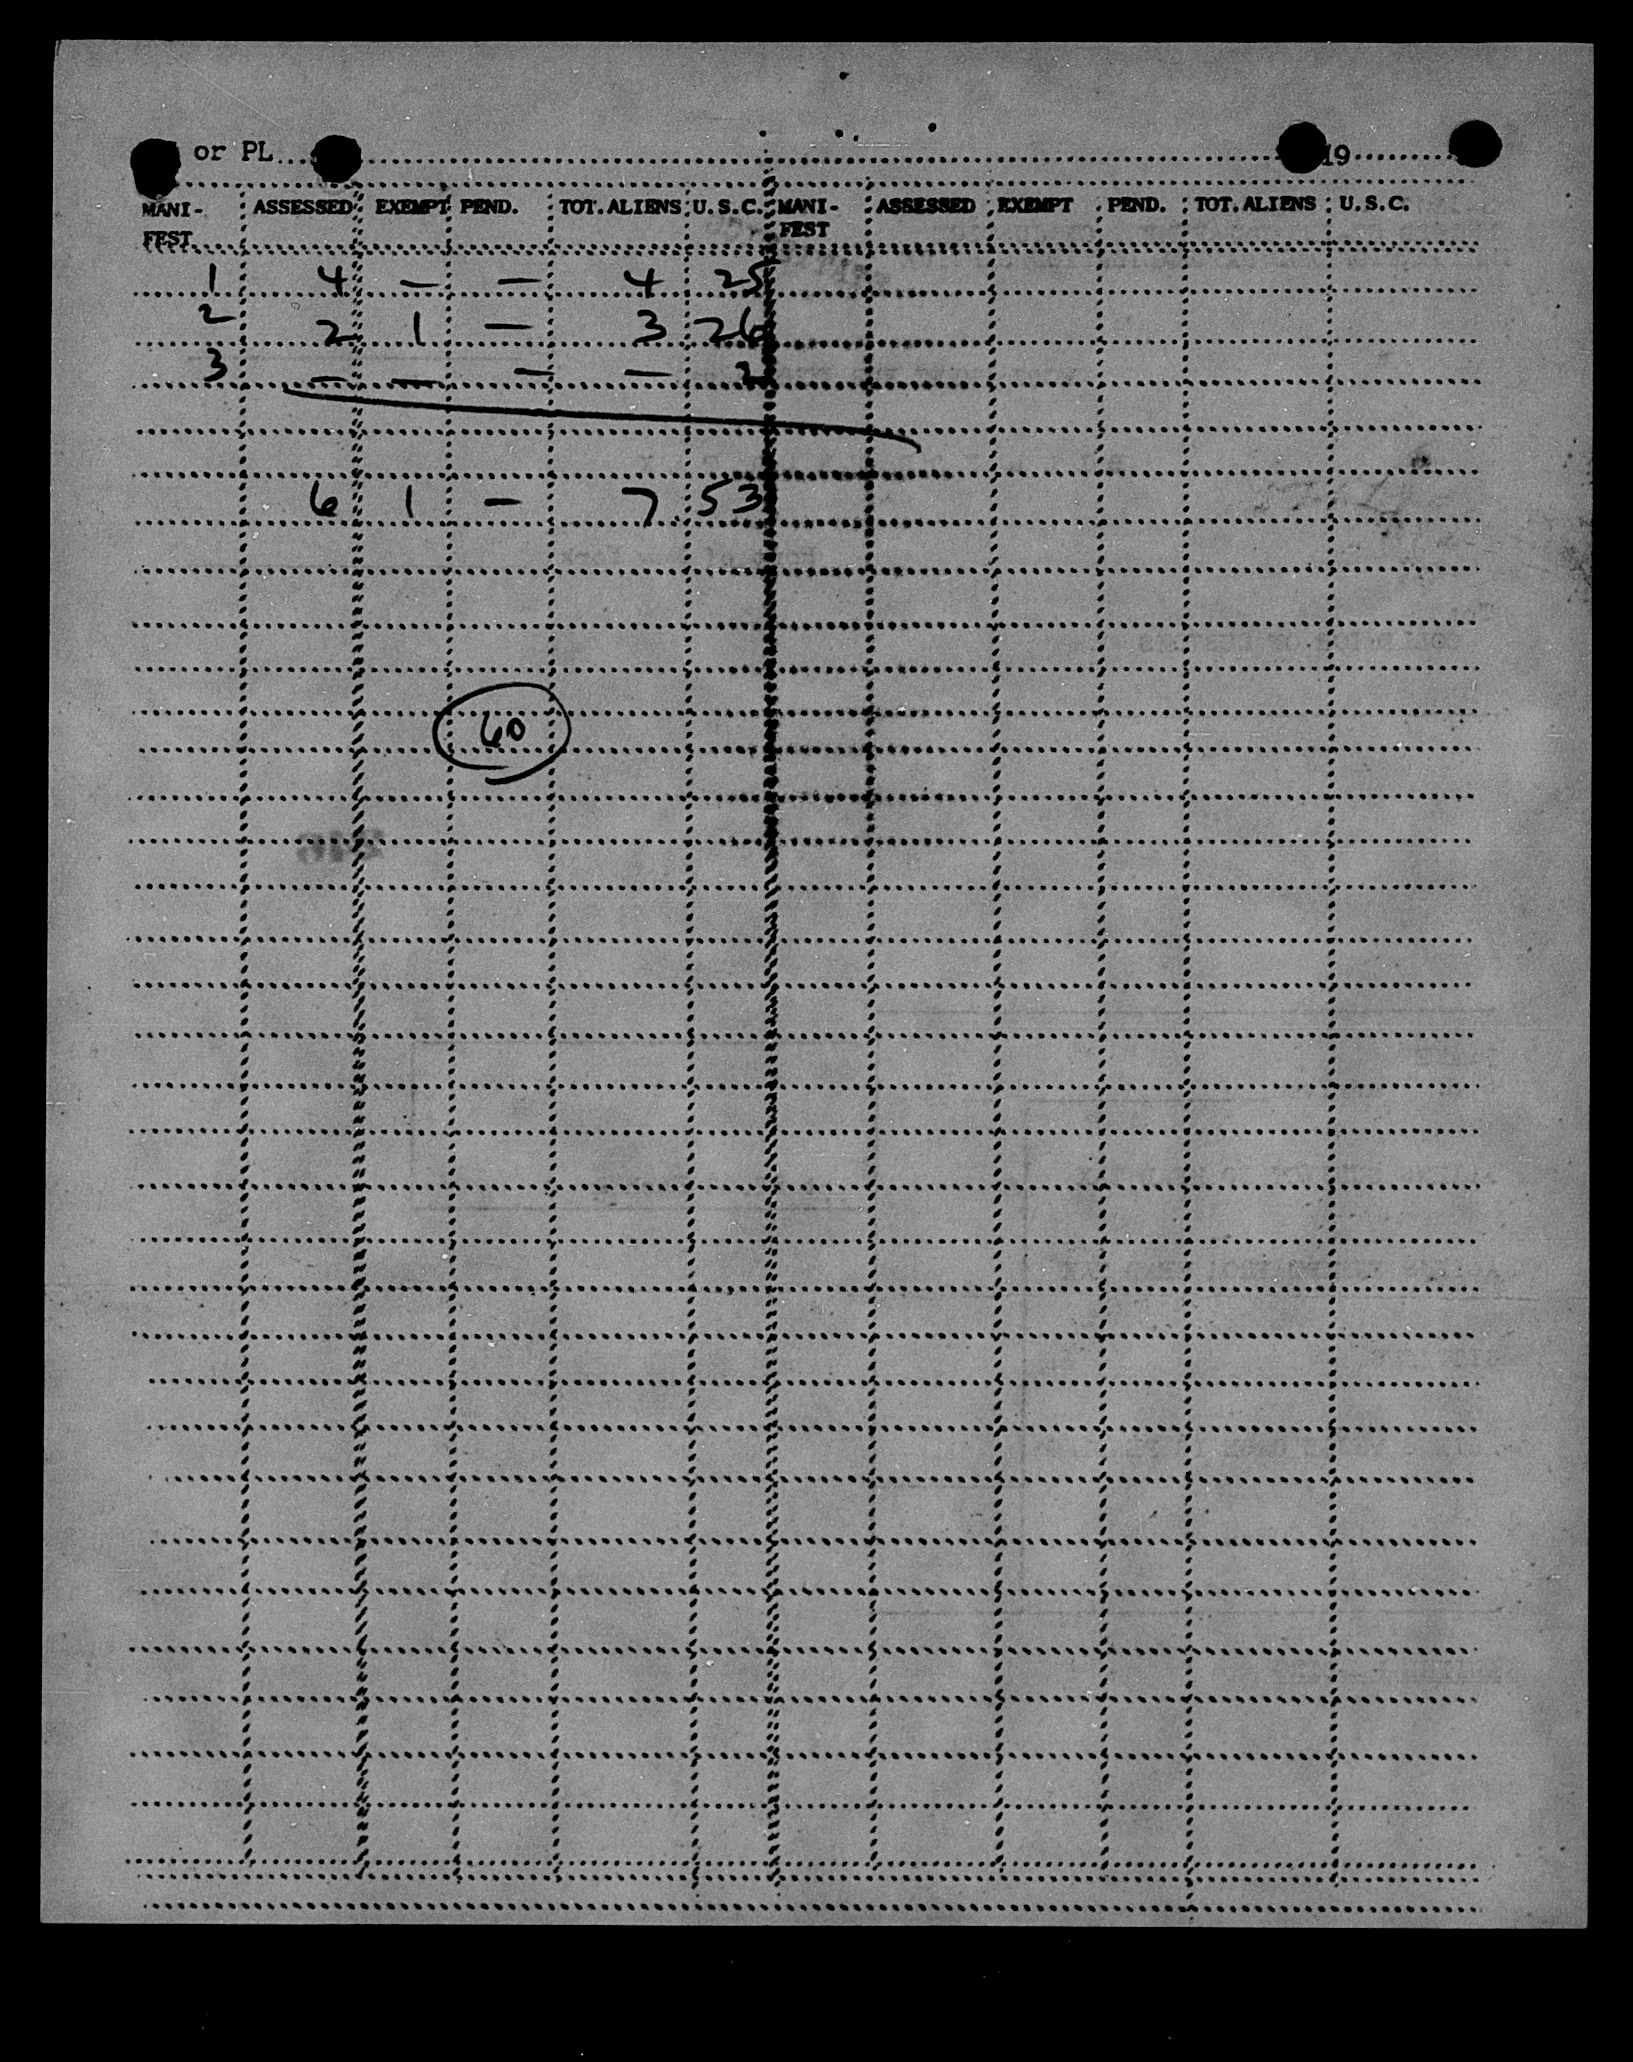 or PL 19
MANI- ASSESSED EXEMPT PEND. TOT. ALIENS U.S.C. MANI- ASSESSED EXEMPT PEND. TOT. ALIENS U.S.C.
FEST FEST
1 4 — — 4 25
2 2 1 — 3 26
3 — — — — 2
6 1 — 7 53
60